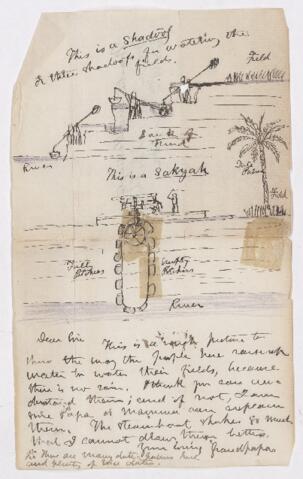 This is a Shadoof
& three shadoofs for watering the
fields.
Field
Bank of
River
This is a Sakyah
Date
Palm
Field
Full
Empty
Pitchers
River
Dear This is a rough picture to
show the way the people here
water to water their fields, because
there is no rain. I think you can
them, & if not, I am
sure Papa or Mamma can explain
them. The steamboat shakes so much
that I cannot draw them better.
Your loving Grandpapa
There are many date palms here
and plenty of dates.